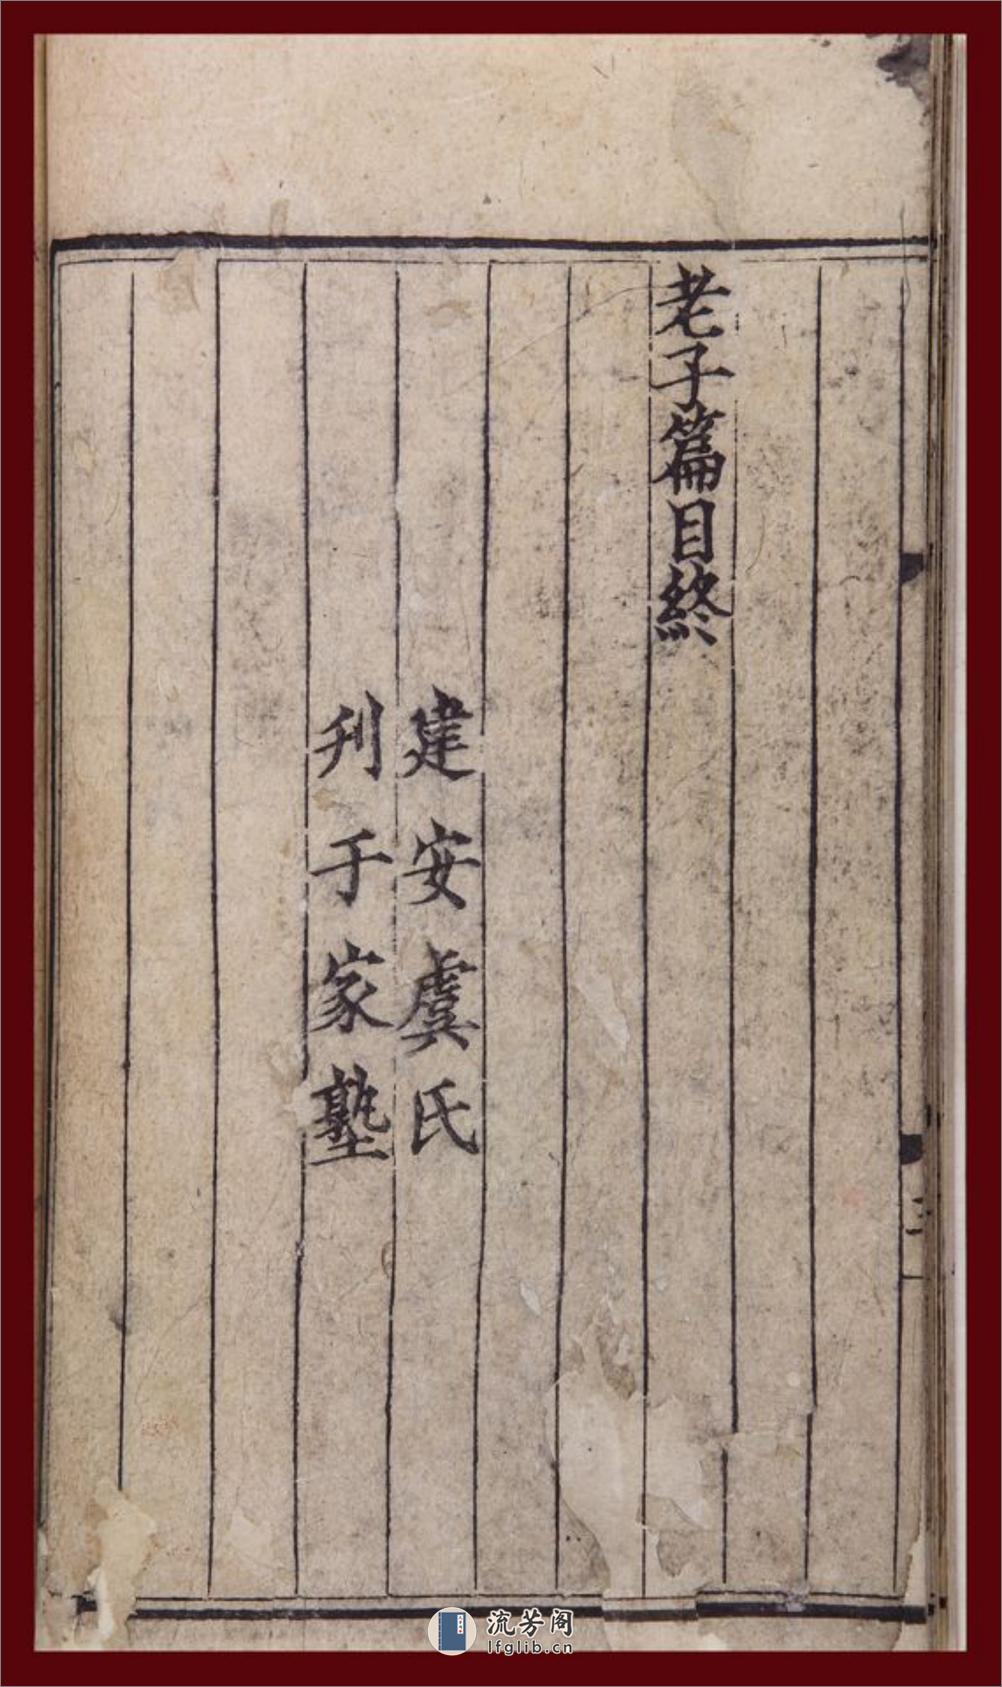 老子篇目終
建安虞氏
刋于家塾
流芳阁
lfglib.cn